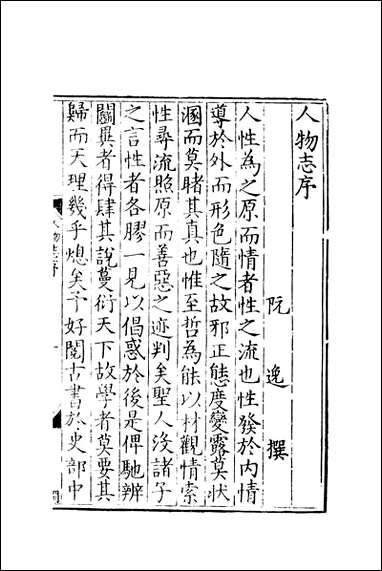 人物志序
阮逸撰
人性為之原而情者性之流也性發於內情
導於外而形色隨之故邪正態度變露莫狀
溷而莫睹其真也惟至哲為能以材觀情索
性尋流照原而善惡之迹判矣聖人沒諸子
之言性者各膠一見以倡惑於後是俾馳辨
鬬異者得肆其說蔓衍天下故學者莫要其
歸而天理幾乎熄矣予好閱古書於史部中
人物志序